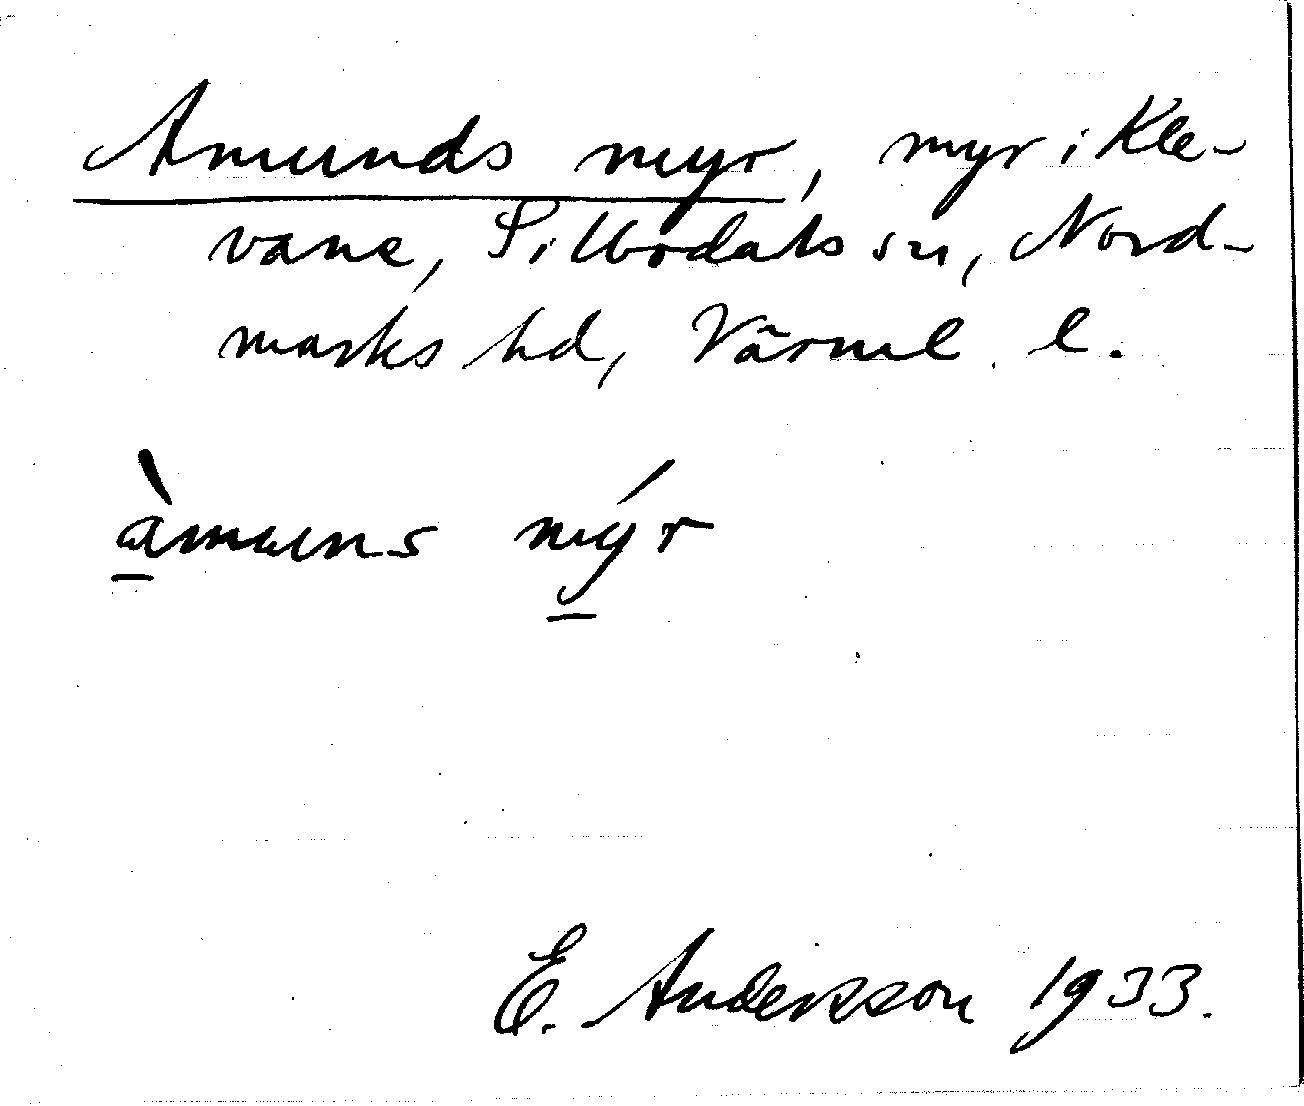 Amunds myr, myr i Kle-
vane, Silbodals sn, Nord-
marks hd, Värml. l.
àmuns mýr
E. Andersson 1933.